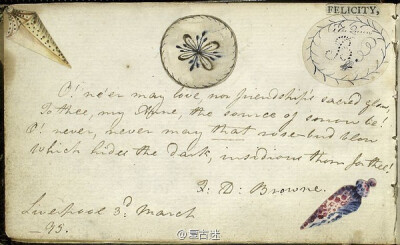 FELICITY,
O! ne'er may love, nor friendship's sacred glow,
To thee, my Anne, the source of sorrow be!
O! never, never may that rose-bud blow
Which hides the dark, insidious thorn for thee!
J: D: Browne.
Liverpool 3d. March
_95.